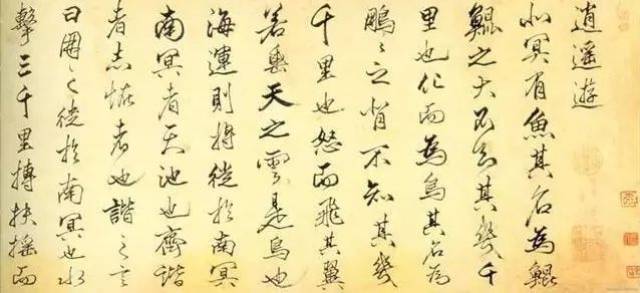 逍遥遊
北冥有魚其名為鯤
鯤之大不知其幾千
里也化而為鳥其名為
鵬〻之背不知其幾
千里也怒而飛其翼
若垂天之雲是鳥也
海運則將徙於南冥
南冥者天池也齊諧
者志怪者也諧之言
曰鵬之徙於南冥也水
擊三千里摶扶搖而